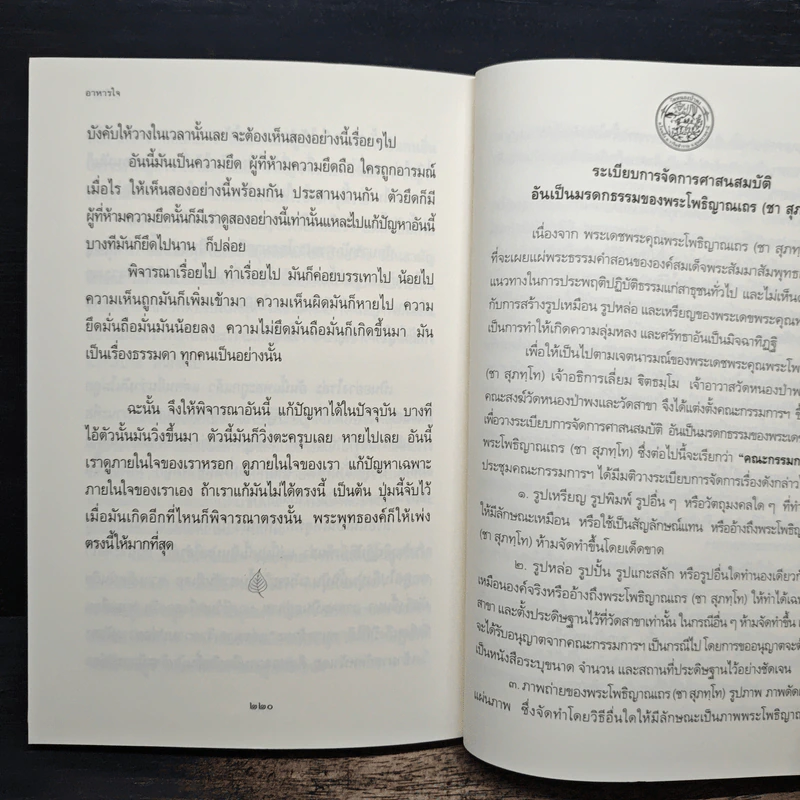 อาหารใจ
บังคับให้วางในเวลานั้นเลย จะต้องเห็นสองอย่างนี้เรื่อยๆไป
อันนี้มันเป็นความยึด ผู้ที่ห้ามความยึดถือ ใครถูกอารมณ์
เมื่อไร ให้เห็นสองอย่างนี้พร้อมกัน ประสานงานกัน ตัวยึดก็มี
ผู้ที่ห้ามความยึดนั้นก็มีเราดูสองอย่างนี้เท่านั้นแหละไปแก้ปัญหาอันนี้
บางทีมันก็ยึดไปนาน ก็ปล่อย
พิจารณาเรื่อยไป ทำเรื่อยไป มันก็ค่อยบรรเทาไป น้อยไป
ความเห็นถูกมันก็เพิ่มเข้ามา ความเห็นผิดมันก็หายไป ความ
ยึดมั่นถือมั่นมันน้อยลง ความไม่ยึดมั่นถือมั่นก็เกิดขึ้นมา มัน
เป็นเรื่องธรรมดา ทุกคนเป็นอย่างนั้น
ฉะนั้น จึงให้พิจารณาอันนี้ แก้ปัญหาได้ในปัจจุบัน บางที
ไอ้ตัวนั้นมันวิ่งขึ้นมา ตัวนี้มันก็วิ่งตะครุบเลย หายไปเลย อันนี้
เราดูภายในใจของเราหรอก ดูภายในใจของเรา แก้ปัญหาเฉพาะ
ภายในใจของเราเอง ถ้าเราแก้มันไม่ได้ตรงนี้ เป็นต้น ปุ่มนี้จับไว้
เมื่อมันเกิดอีกที่ไหนก็พิจารณาตรงนั้น พระพุทธองค์ก็ให้เพ่ง
ตรงนี้ให้มากที่สุด
๒๒๐
ระเบียบการจัดการศาสนสมบัติ
อันเป็นมรดกธรรมของพระโพธิญาณเถร (ชา สุภ
เนื่องจาก พระเดชพระคุณพระโพธิญาณเถร (ชา สุภทฺ
ที่จะเผยแผ่พระธรรมคำสอนขององค์สมเด็จพระสัมมาสัมพุทธ
แนวทางในการประพฤติปฏิบัติธรรมแก่สาธุชนทั่วไป และไม่เห็น
กับการสร้างรูปเหมือน รูปหล่อ และเหรียญของพระเดชพระคุณ
เป็นการทำให้เกิดความลุ่มหลง และศรัทธาอันเป็นมิจฉาทิฏฐิ
เพื่อให้เป็นไปตามเจตนารมณ์ของพระเดชพระคุณพระโพ
(ชา สุภทฺโท) เจ้าอธิการเลี่ยม ฐิตธมฺโม เจ้าอาวาสวัดหนองป่าพ
คณะสงฆ์วัดหนองป่าพงและวัดสาขา จึงได้แต่งตั้งคณะกรรมการฯ
เพื่อวางระเบียบการจัดการศาสนสมบัติ อันเป็นมรดกธรรมของพระเดช
พระโพธิญาณเถร (ชา สุภทฺโท) ซึ่งต่อไปนี้จะเรียกว่า “คณะกรรมก
ประชุมคณะกรรมการฯ ได้มีมติวางระเบียบการจัดการเรื่องดังกล่าว
๑. รูปเหรียญ รูปพิมพ์ รูปอื่น ๆ หรือวัตถุมงคลใด ๆ ที่ทำ
ให้มีลักษณะเหมือน หรือใช้เป็นสัญลักษณ์แทน หรืออ้างถึงพระโพธิญ
(ชา สุภทฺโท) ห้ามจัดทำขึ้นโดยเด็ดขาด
๒. รูปหล่อ รูปปั้น รูปแกะสลัก หรือรูปอื่นใดทำนองเดียว
เหมือนองค์จริงหรืออ้างถึงพระโพธิญาณเถร (ชา สุภทฺโท) ให้ทำได้เฉ
สาขา และตั้งประดิษฐานไว้ที่วัดสาขาเท่านั้น ในกรณีอื่น ๆ ห้ามจัดทำขึ้น
จะได้รับอนุญาตจากคณะกรรมการฯ เป็นกรณีไป โดยการขออนุญาตจะ
เป็นหนังสือระบุขนาด จำนวน และสถานที่ประดิษฐานไว้อย่างชัดเจน
๓. ภาพถ่ายของพระโพธิญาณเถร (ชา สุภทฺโท) รูปภาพ ภาพตัด
แผ่นภาพ ซึ่งจัดทำโดยวิธีอื่นใดให้มีลักษณะเป็นภาพพระโพธิญาณ